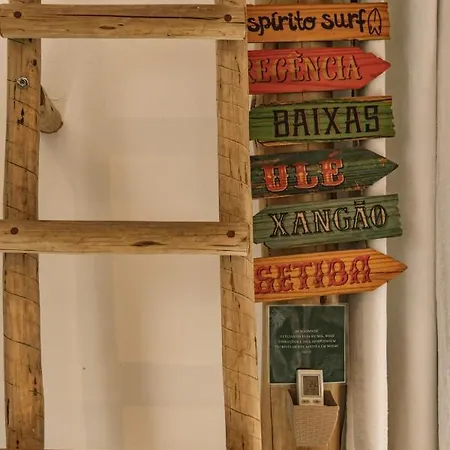 espírito surf
REGÊNCIA
BAIXAS
ULÉ
XANGÃO
SETIBA